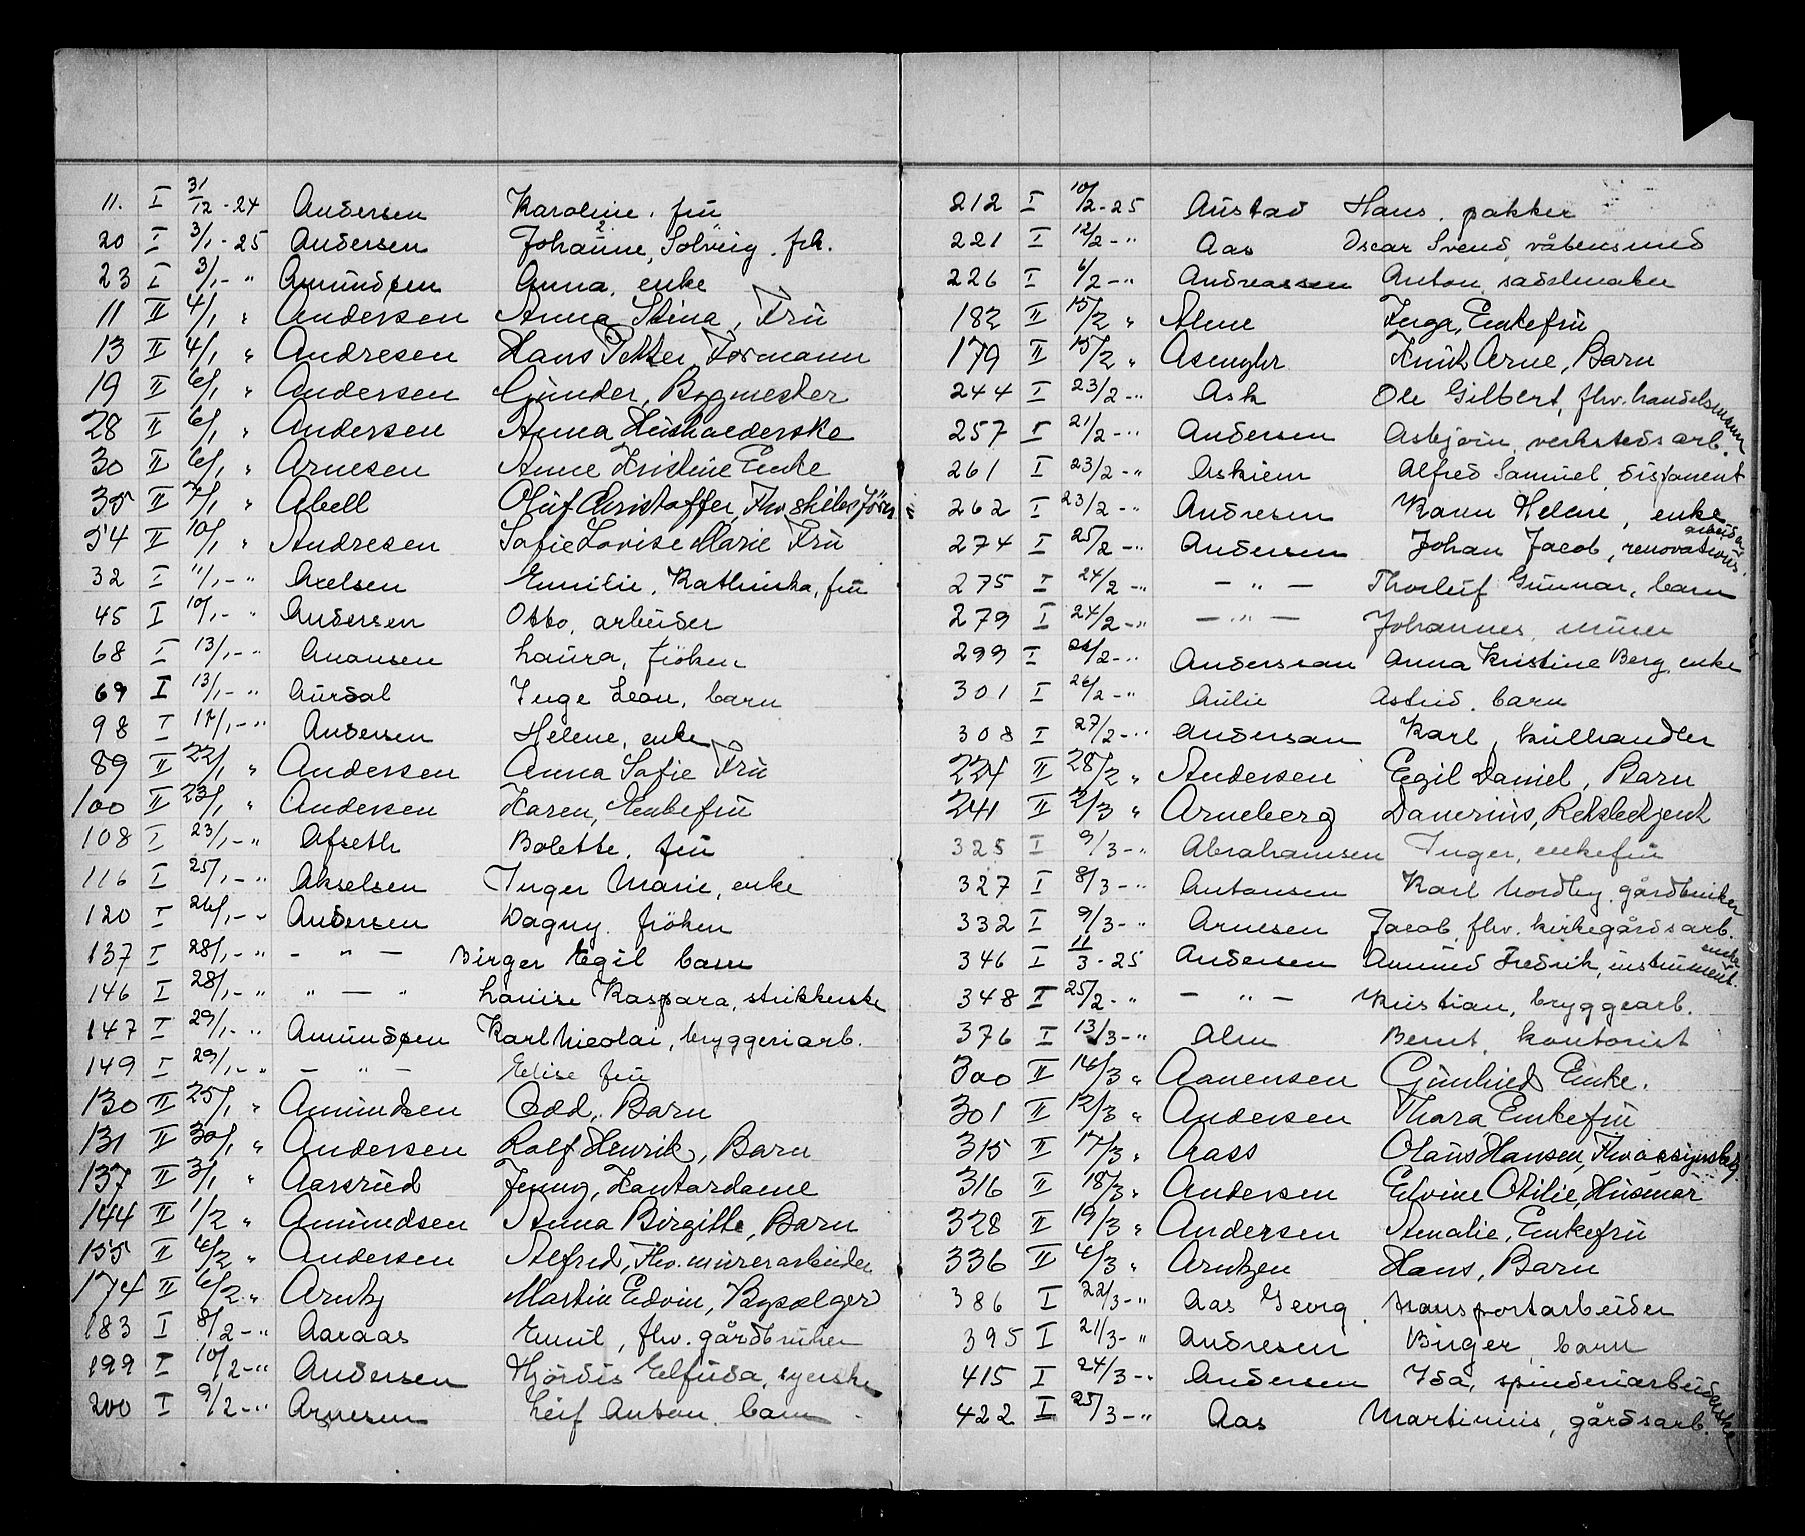 11. I 31/12 - 24 Andersen Karoline. fru
20 I 3/1 - 25 Andersen Johanne, Solveig. frk.
23 I 3/1 - " Amundsen Anna, enke
11 II 4/1 " Andersen Anna Stina, Fru
13 II 4/1 " Andresen Hans Petter, Formann
19 II 6/1 " Andersen Gunder, Bygmester
28 II 6/1 " Andersen Anna Husholderske
30 II 6/1 " Arnesen Anne Kristine Enke
35 II 7/1 " Abell Oluf Christoffer, Fhv.
54 II 10/1 " Andresen Sofie Lovise Marie Fru
32 I 11/1 - " Axelsen Emilie, Kathinka, fru
45 I 10/1 - " Andersen Otto, arbeider
68 I 13/1 - " Anonsen Laura, fröken
69 I 13/1 - " Aurdal Inge Leon, barn
98 I 17/1 - " Andersen Helene, enke
89 II 22/1 " Andersen Anna Sofie Fru
100 II 23/1 " Andersen Karen, Enkefru
108 I 23/1 - " Afseth Bolette, fru
116 I 25/1 - " Akselsen Inger Marie, enke
120 I 26/1 - " Andersen Dagny. fröken
137 I 28/1 - " - " - Birger Egil barn
146 I 28/1 - " " - " Louise Kaspara, strikkerske
147 I 29/1 - " Amundsen Karl Nicolai, bryggeriarb.
149 I 29/1 - " - " - Elise fru
130 II 25/1 " Amundsen Odd, Barn
131 II 30/1 " Andersen Rolf Henrik, Barn
137 II 3/1 " Aasrud Jenny, Kontordame
144 II 1/2 " Amundsen Anna Birgitte, Barn
155 II 4/2 " Andersen Alfred, Fhv. murerarbeider
174 II 6/2 " Arntz Martin Edvin, Bypælger
183 I 8/2 - " Aaraas Emil, fhv. gårdbruker
199 I 10/2 - " Andersen Hjördis Elfrida, syerske
200 I 9/2 - " Arnesen Leif Anton. barn
212 I 10/2 - 25 Austad Hans. pakker
221 I 12/2 - " Aas Oscar Svend, våbensmed
226 I 6/2 - " Andreassen Anton, sadelmaker
182 II 15/2 " Alme Inga, Enkefru
179 II 15/2 " Asmyhr Knut Arne, Barn
244 I 23/2 - " Ask Ole Gilbert, fhv. handelsmann
257 I 21/2 - " Andersen Asbjørn, verkstedsarb.
261 I 23/2 - " Askiem Alfred Samuel, disponent
262 I 23/2 - " Andresen Karen Helene, enke
274 I 25/2 - " Andersen Johan Jacob, renovations arbeider.
275 I 24/2 - " - " - Thorleif Gunnar, barn
279 I 24/2 - " - " - Johannes, murer
299 I 26/2 - " Anderssan Anna Kristine Berg, enke
301 I 26/2 - " Aulie Astrid. barn
308 I 27/2 - " Anderson Karl, kulhandler
224 II 28/2 " Andersen Egil Daniel, Barn
241 II 2/3 " Arneberg Danerius, Retsbetjent
325 I 9/3 - " Abrahamsen Inger, enkefru
327 I 8/3 - " Antonsen Karl Nordby, gårdbruker
332 I 9/3 - " Arnesen Jacob, fhv. kirkegårdsarb.
346 I 11/3 - 25 Andersen Amund Fredrik, instrument.
348 I 25/2 - " - " - Kristian, bryggearb.
376 I 13/3 - " Alm Bernt. kontorist
300 II 14/3 " Aanensen Gunhild Enke.
301 II 12/3 " Andersen Thora Enkefru
315 II 17/3 " Aass Olaus Hansen, Fhv.
316 II 18/3 " Andersen Elvine Otilie, Husmor
328 II 19/3 " Andersen Amalie, Enkefru
336 II 4/3 " Arntzen Hans, Barn
386 I 22/3 - " Aas Georg transportarbeider
395 I 21/3 - " Andresen Birger, barn
415 I 24/3 - " Andersen Ida, spinderiarbeiderske
422 I 25/3 - " Aas Martinius, gårdsarb.